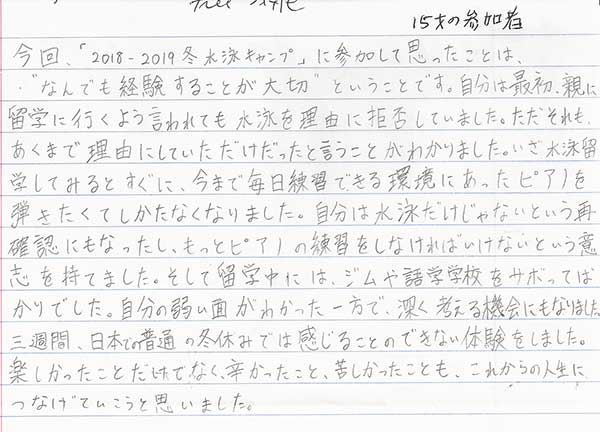 Free style
15才の参加者
今回、「2018-2019冬水泳キャンプ」に参加して思ったことは、
・"なんでも経験することが大切"ということです。自分は最初、親に
留学に行くよう言われても水泳を理由に拒否していました。ただそれも、
あくまで理由にしていただけだったと言うことがわかりました。いざ水泳留
学してみるとすぐに、今まで毎日練習できる環境にあったピアノを
弾きたくてしかたなくなりました。自分は水泳だけじゃないという再
確認にもなったし、もっとピアノの練習をしなければいけないという意
志を持てました。そして留学中には、ジムや語学学校をサボってば
かりでした。自分の弱い面がわかった一方で、深く考える機会にもなりました。
三週間、日本での普通の冬休みでは感じることのできない体験をしました。
楽しかったことだけでなく、辛かったこと、苦しかったことも、これからの人生に
つなげていこうと思いました。